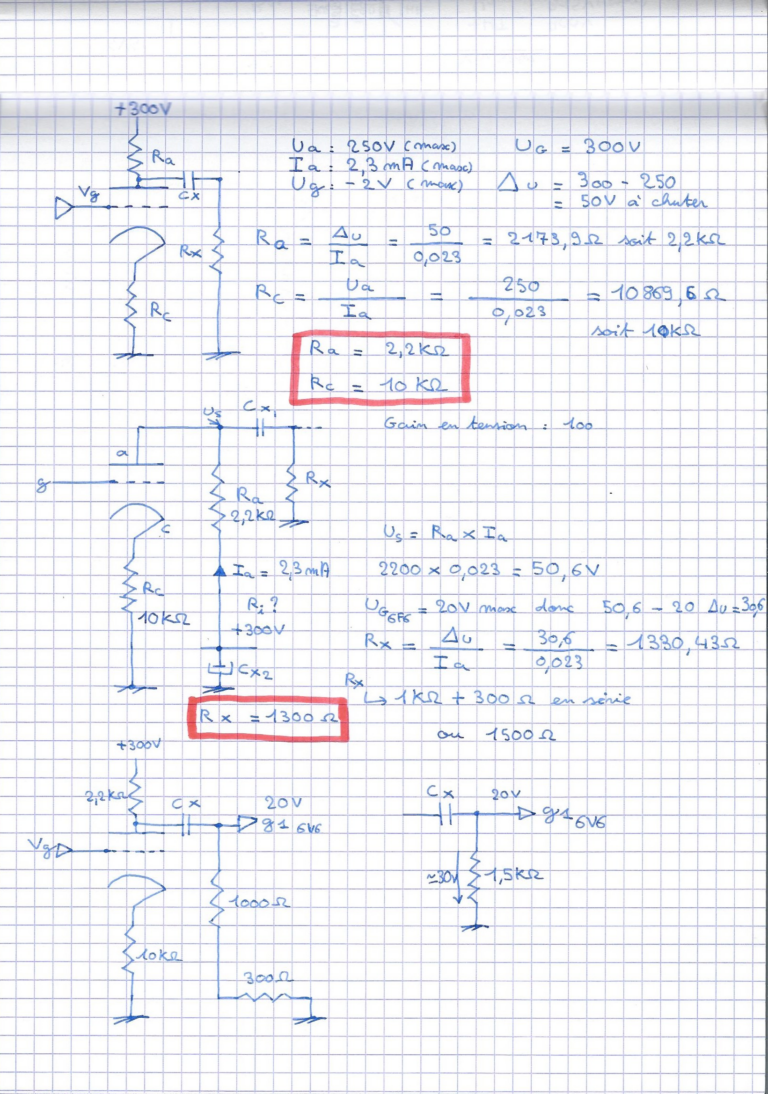 +300V
Ra
Vg
Cx
Rx
Rc
Ua : 250V (max)
UG = 300V
Ia : 2,3 mA (max)
Ug : -2V (max)
Δu = 300 - 250
= 50V à chuter
Ra = Δu / Ia = 50 / 0,023 = 2173,9Ω soit 2,2kΩ
Rc = Ua / Ia = 250 / 0,023 = 10869,6Ω
soit 10kΩ
Ra = 2,2kΩ
Rc = 10 kΩ
Us
Cx1
Gain en tension : 100
a
g
Rx
Ra
2,2kΩ
c
Us = Ra × Ia
Ia = 2,3mA
2200 × 0,023 = 50,6V
Rc
10kΩ
Ri ?
+300V
UG6F6 = 20V max donc 50,6 - 20 Δu = 30,6
Rx = Δu / Ia = 30,6 / 0,023 = 1330,43Ω
Cx2
Rx
↳ 1kΩ + 300 Ω en série
Rx = 1300 Ω
ou 1500 Ω
+300V
2,2kΩ
Cx
20V
g1 6V6
Vg
1000Ω
10kΩ
300Ω
Cx
20V
g1 6V6
≃30V
1,5kΩ